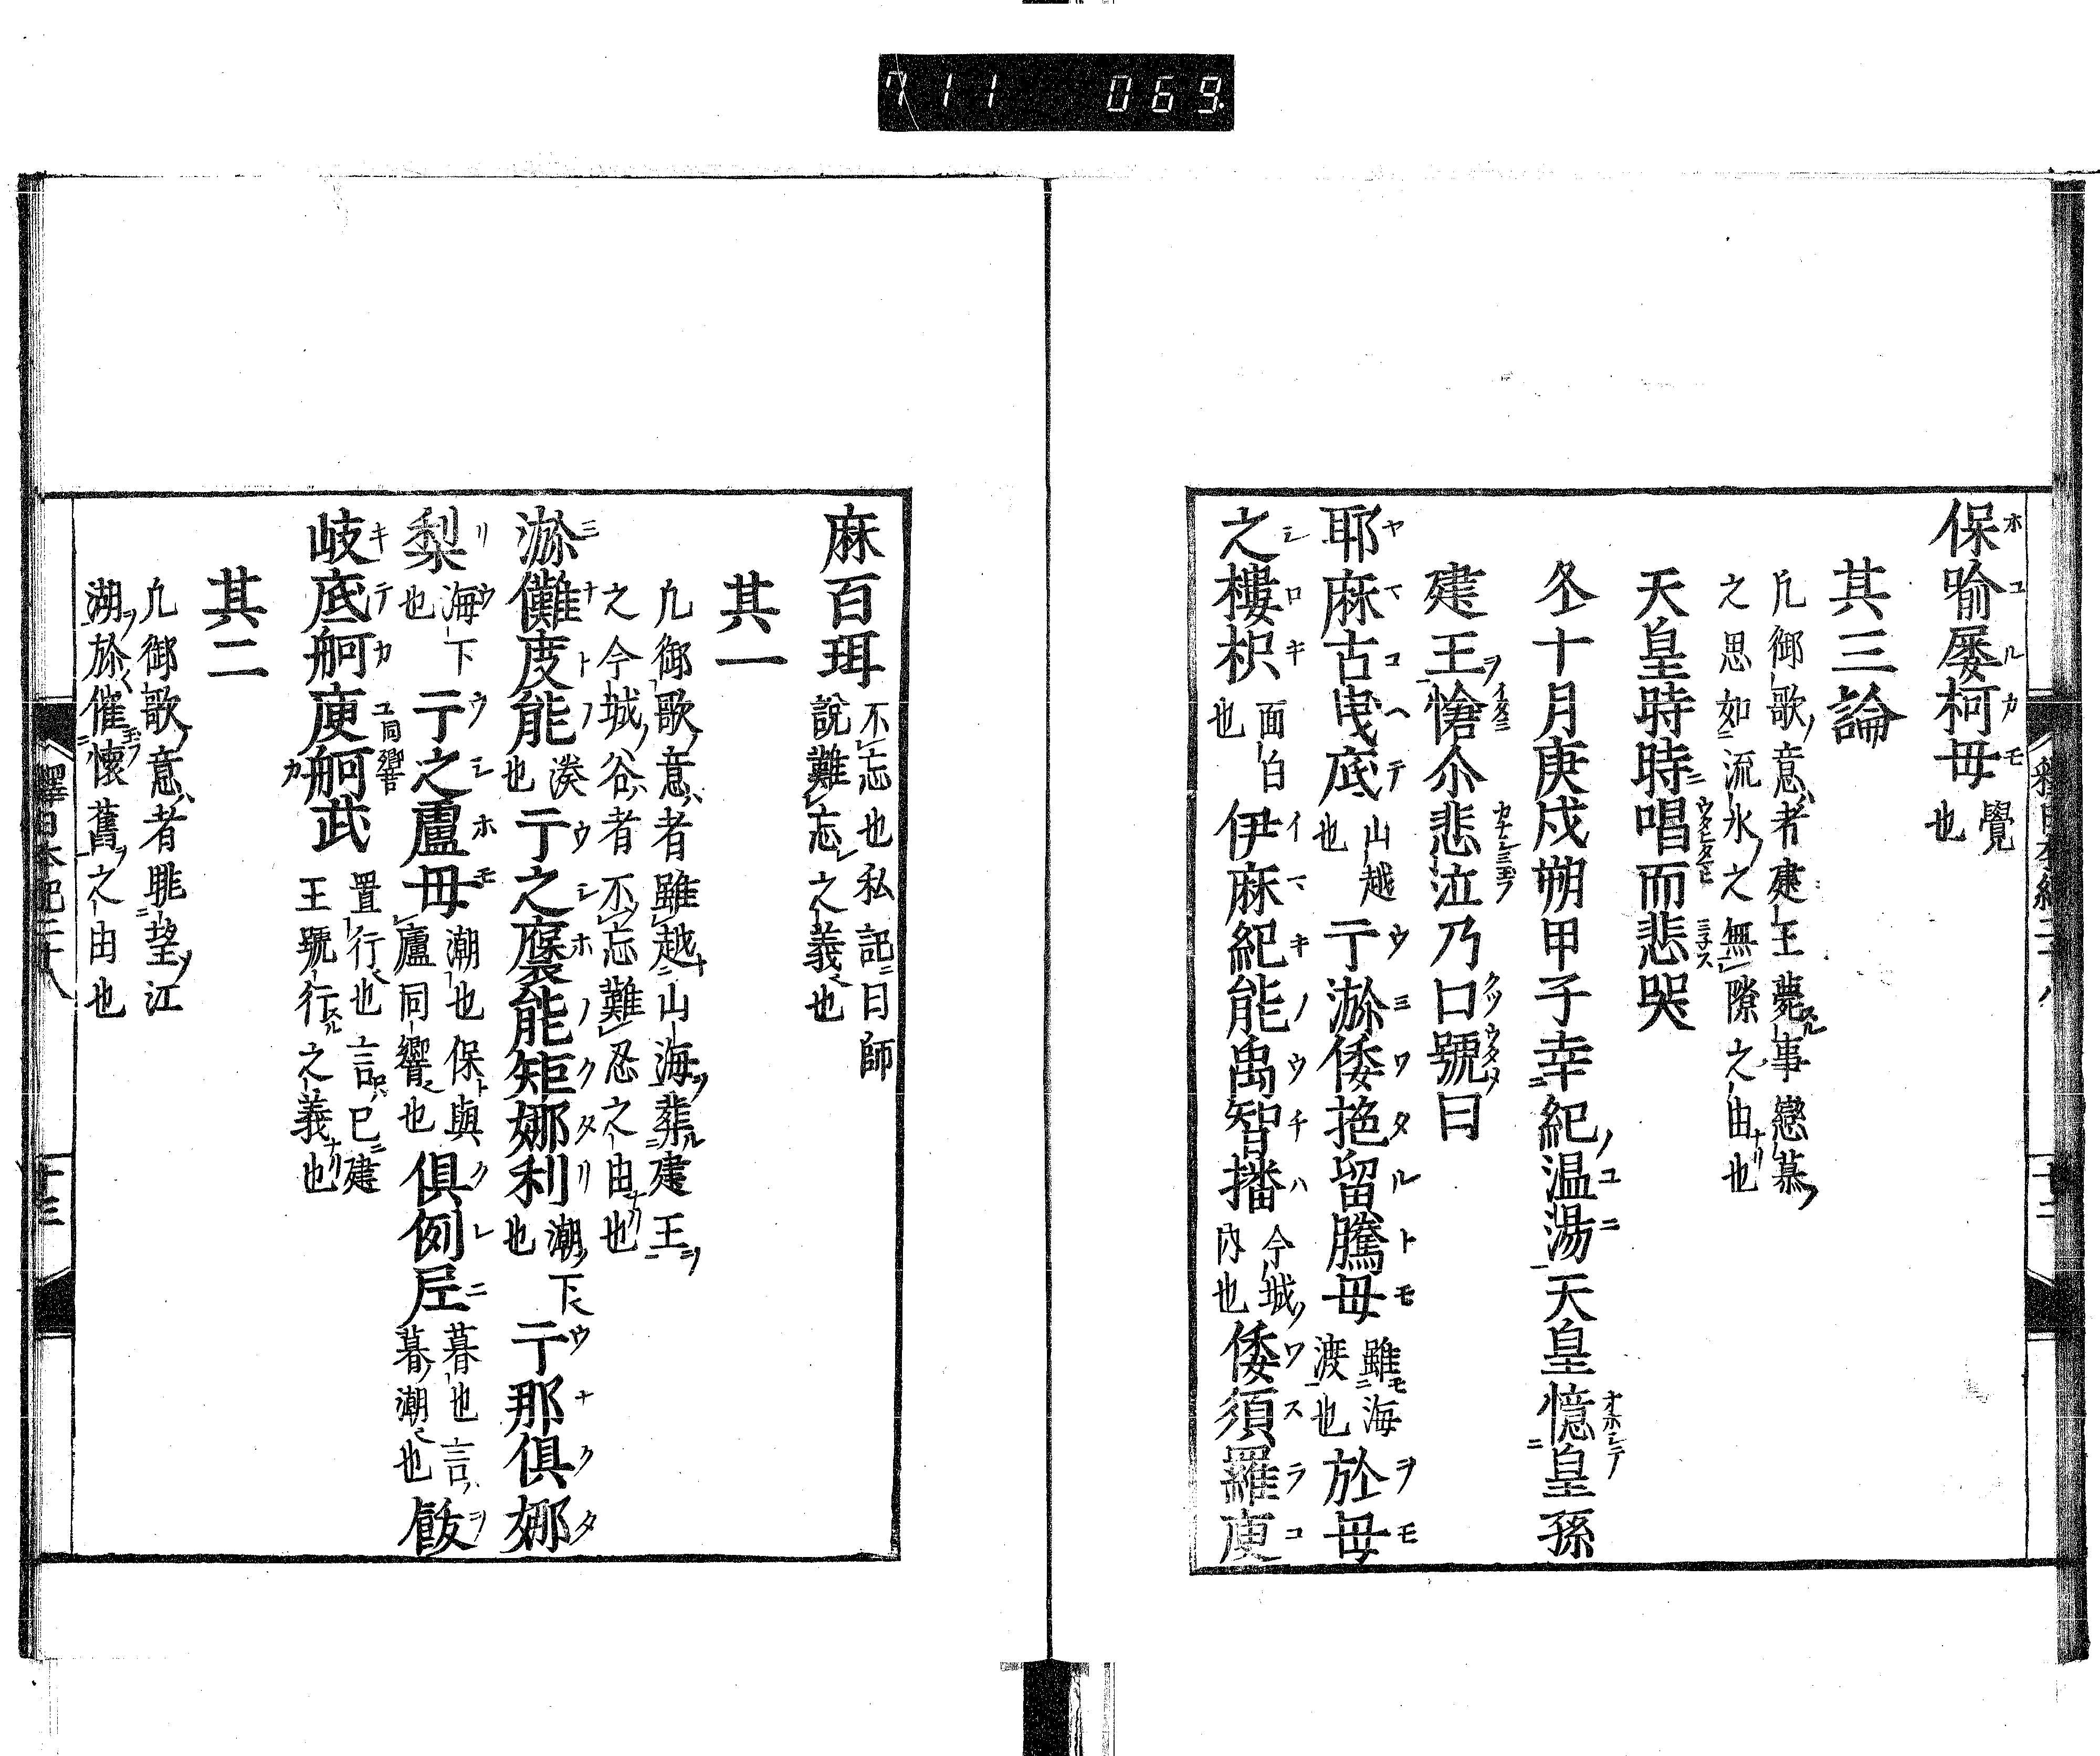 711 069
保喻屡柯母 覺也
其三論
凢御歌意者建王薨事戀慕
之思如流水之無隙之由也
天皇時時唱而悲哭
冬十月庚戍朔甲子幸紀温湯天皇憶皇孫
建王愴尒悲泣乃口號曰
耶麻古曳底 山越也 亍瀰倭拖留騰母 雖海渡也 於母
之樓枳 面白也 伊麻紀能禹智播 今城内也 倭須羅庾
麻百珥 不忘也私記曰師說難忘之義也
其一
凢御歌意者雖越山海葬建王
之今城谷者不忘難忍之由也
瀰儺度能 湊也 亍之裒能矩娜利 潮下也 亍那俱娜
梨 海下也 亍之盧母 潮也保與廬同響也 俱例尼 暮也言暮潮也 飫
岐底舸庾舸武 置行也言已建王號行之義也
其二
凢御歌意者眺望江
湖於催懷舊之由也